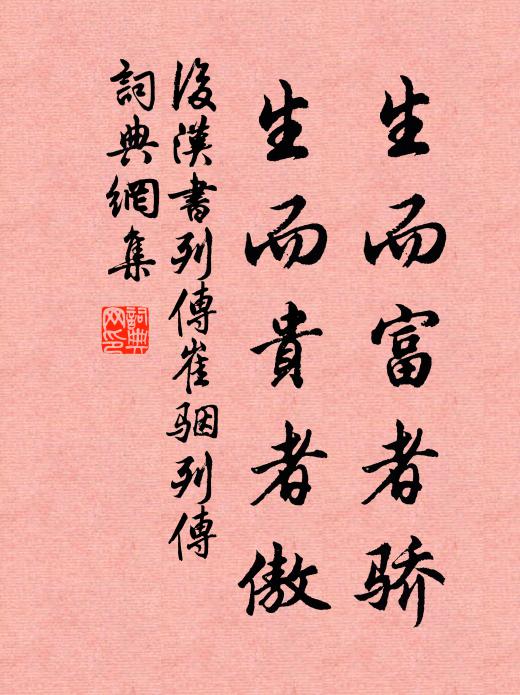 生而富者骄
生而貴者傲
後漢書列傳崔骃列傳
詞典網集
詞典
网印